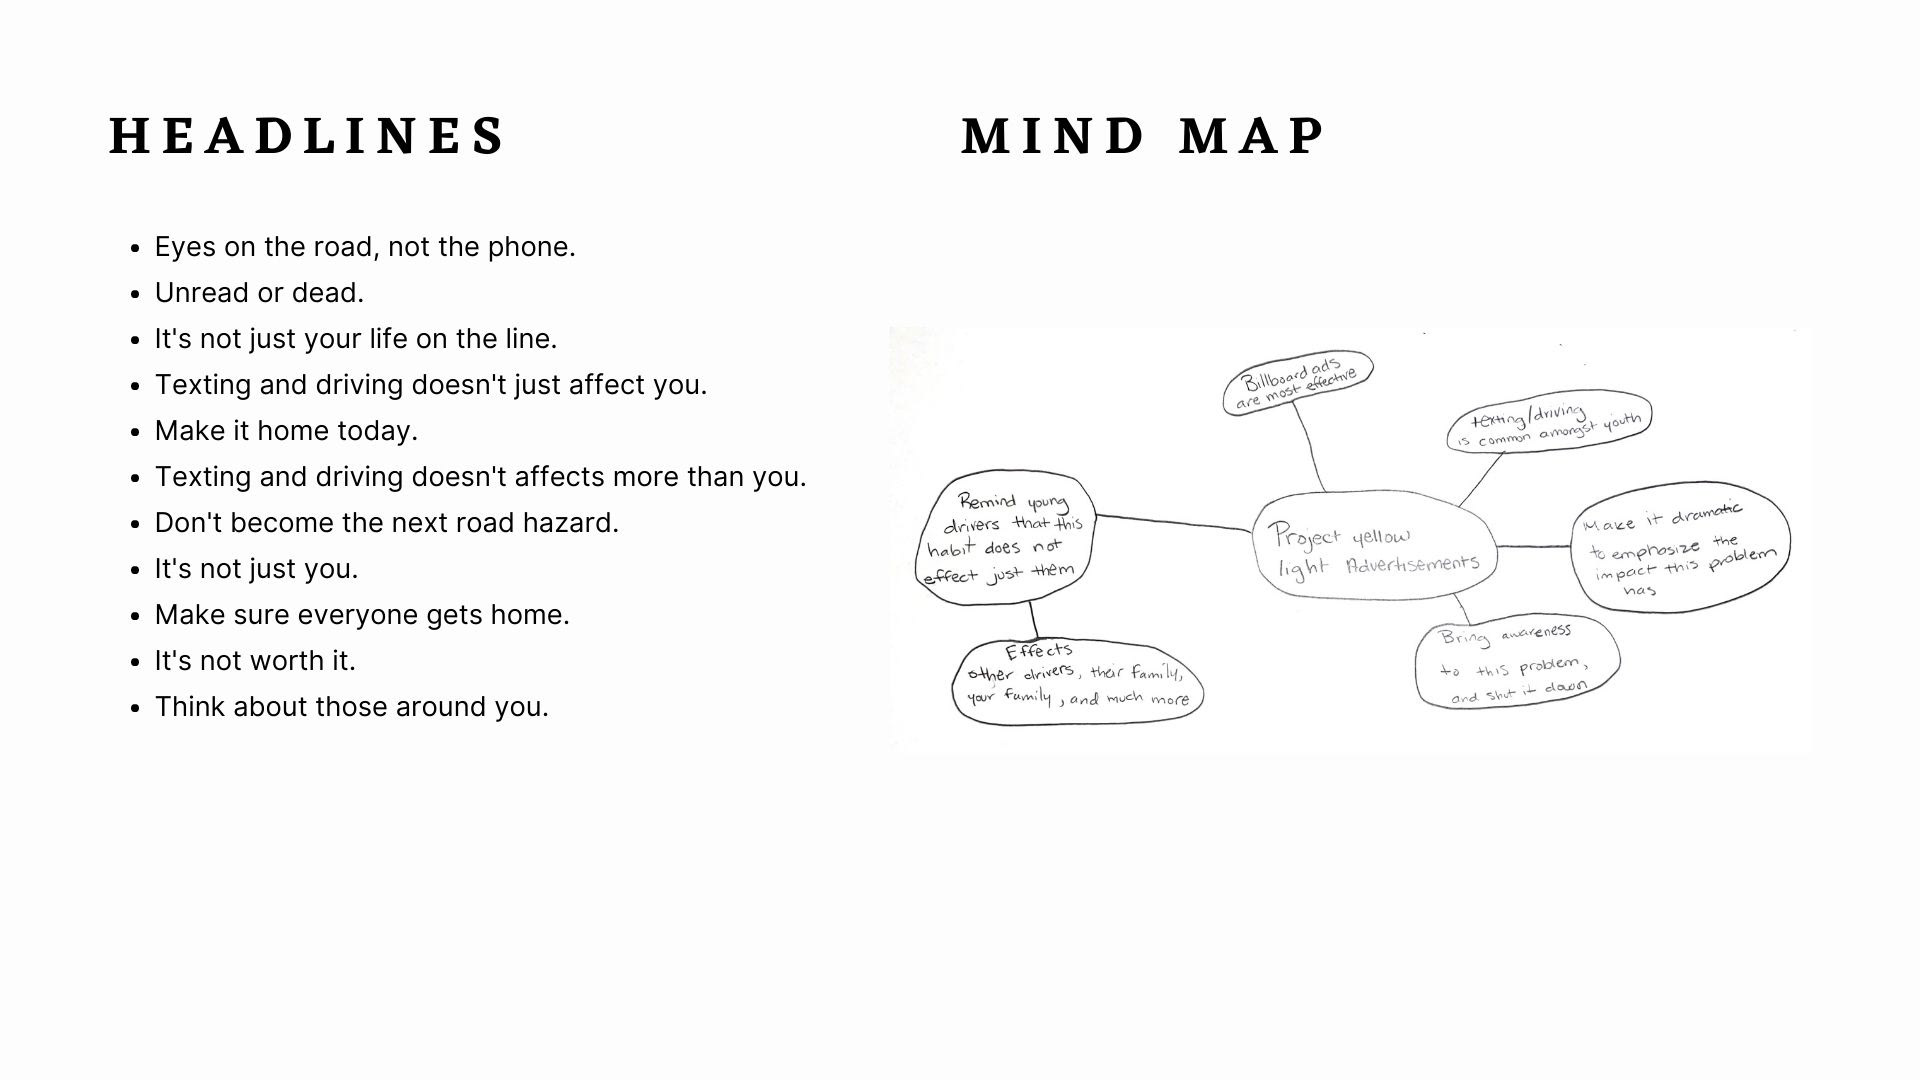 HEADLINES
Eyes on the road, not the phone.
Unread or dead.
It's not just your life on the line.
Texting and driving doesn't just affect you.
Make it home today.
Texting and driving doesn't affects more than you.
Don't become the next road hazard.
It's not just you.
Make sure everyone gets home.
It's not worth it.
Think about those around you.
MIND MAP
Billboard ads
are most effective
texting/driving
is common amongst youth
Remind young
drivers that this
habit does not
effect just them
Project yellow
light Advertisements
Make it dramatic
to emphosize the
impact this problem
has
Effects
other drivers, their family,
your family, and much more
Bring awareness
to this problem,
and shut it down